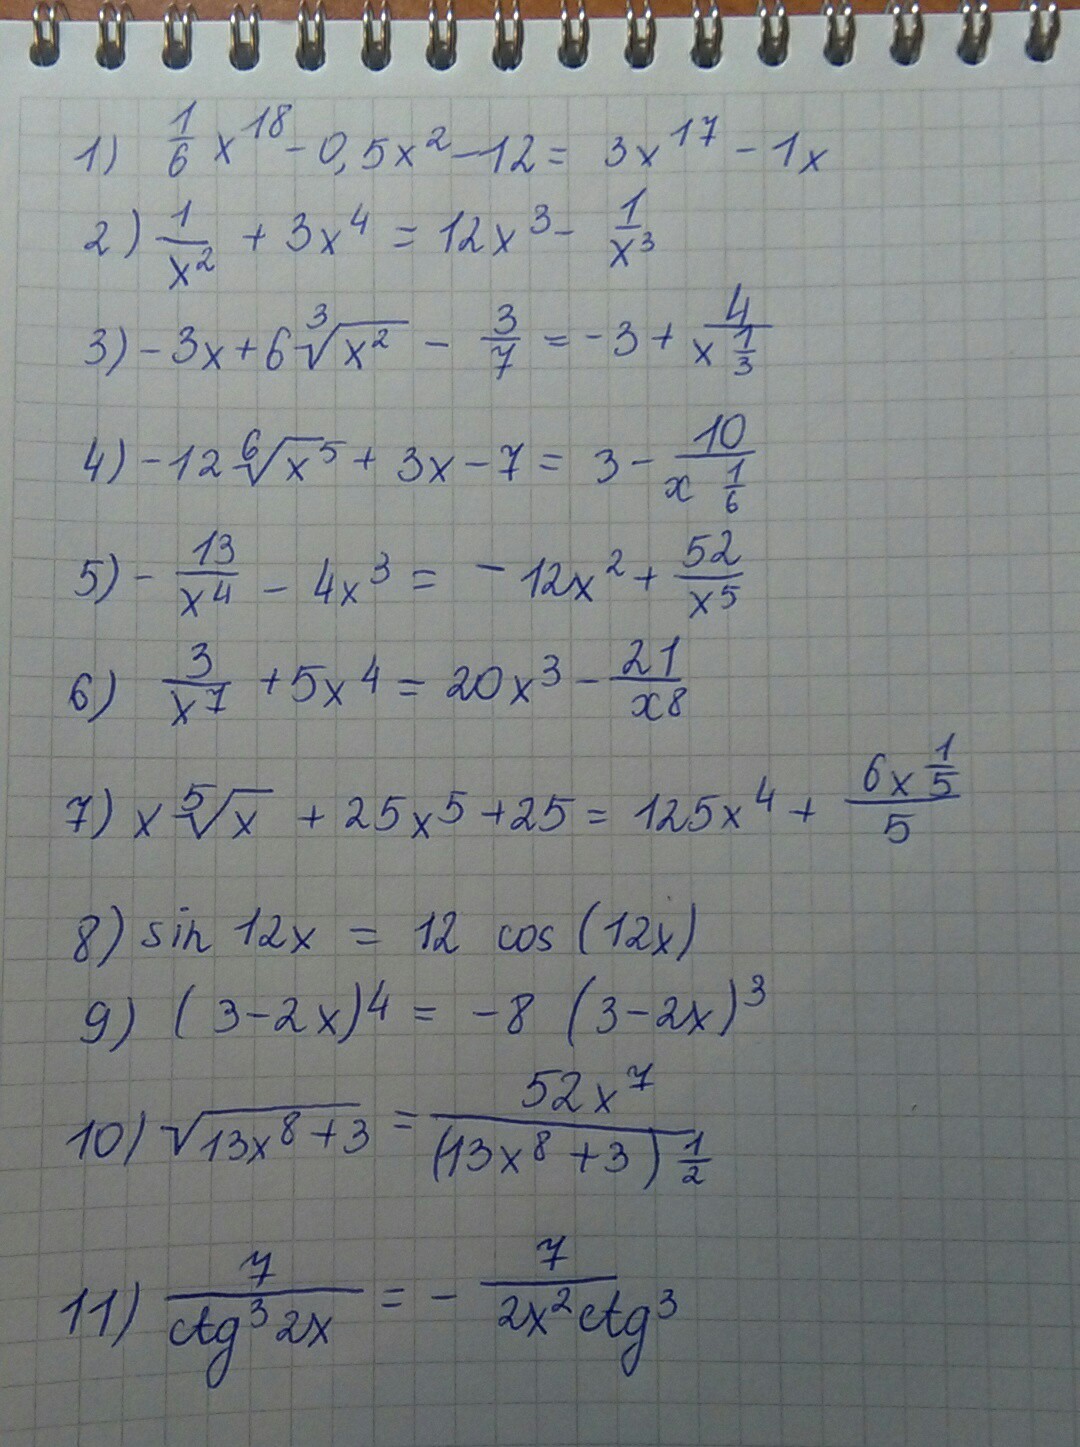 1) 1/6 x^18 - 0,5x^2 - 12 = 3x^17 - 1x
2) 1/x^2 + 3x^4 = 12x^3 - 1/x^3
3) - 3x + 6 ∛(x^2) - 3/7 = -3 + 4/(x^(1/3))
4) - 12 ⁶√(x^5) + 3x - 7 = 3 - 10/(x^(1/6))
5) - 13/x^4 - 4x^3 = - 12x^2 + 52/x^5
6) 3/x^7 + 5x^4 = 20x^3 - 21/x^8
7) x ⁵√x + 25x^5 + 25 = 125x^4 + (6x^(1/5))/5
8) sin 12x = 12 cos (12x)
9) (3-2x)^4 = -8 (3-2x)^3
10) √(13x^8 + 3) = 52x^7/(13x^8 + 3)^(1/2)
11) 7/(ctg^3 2x) = - 7/(2x^2 ctg^3)